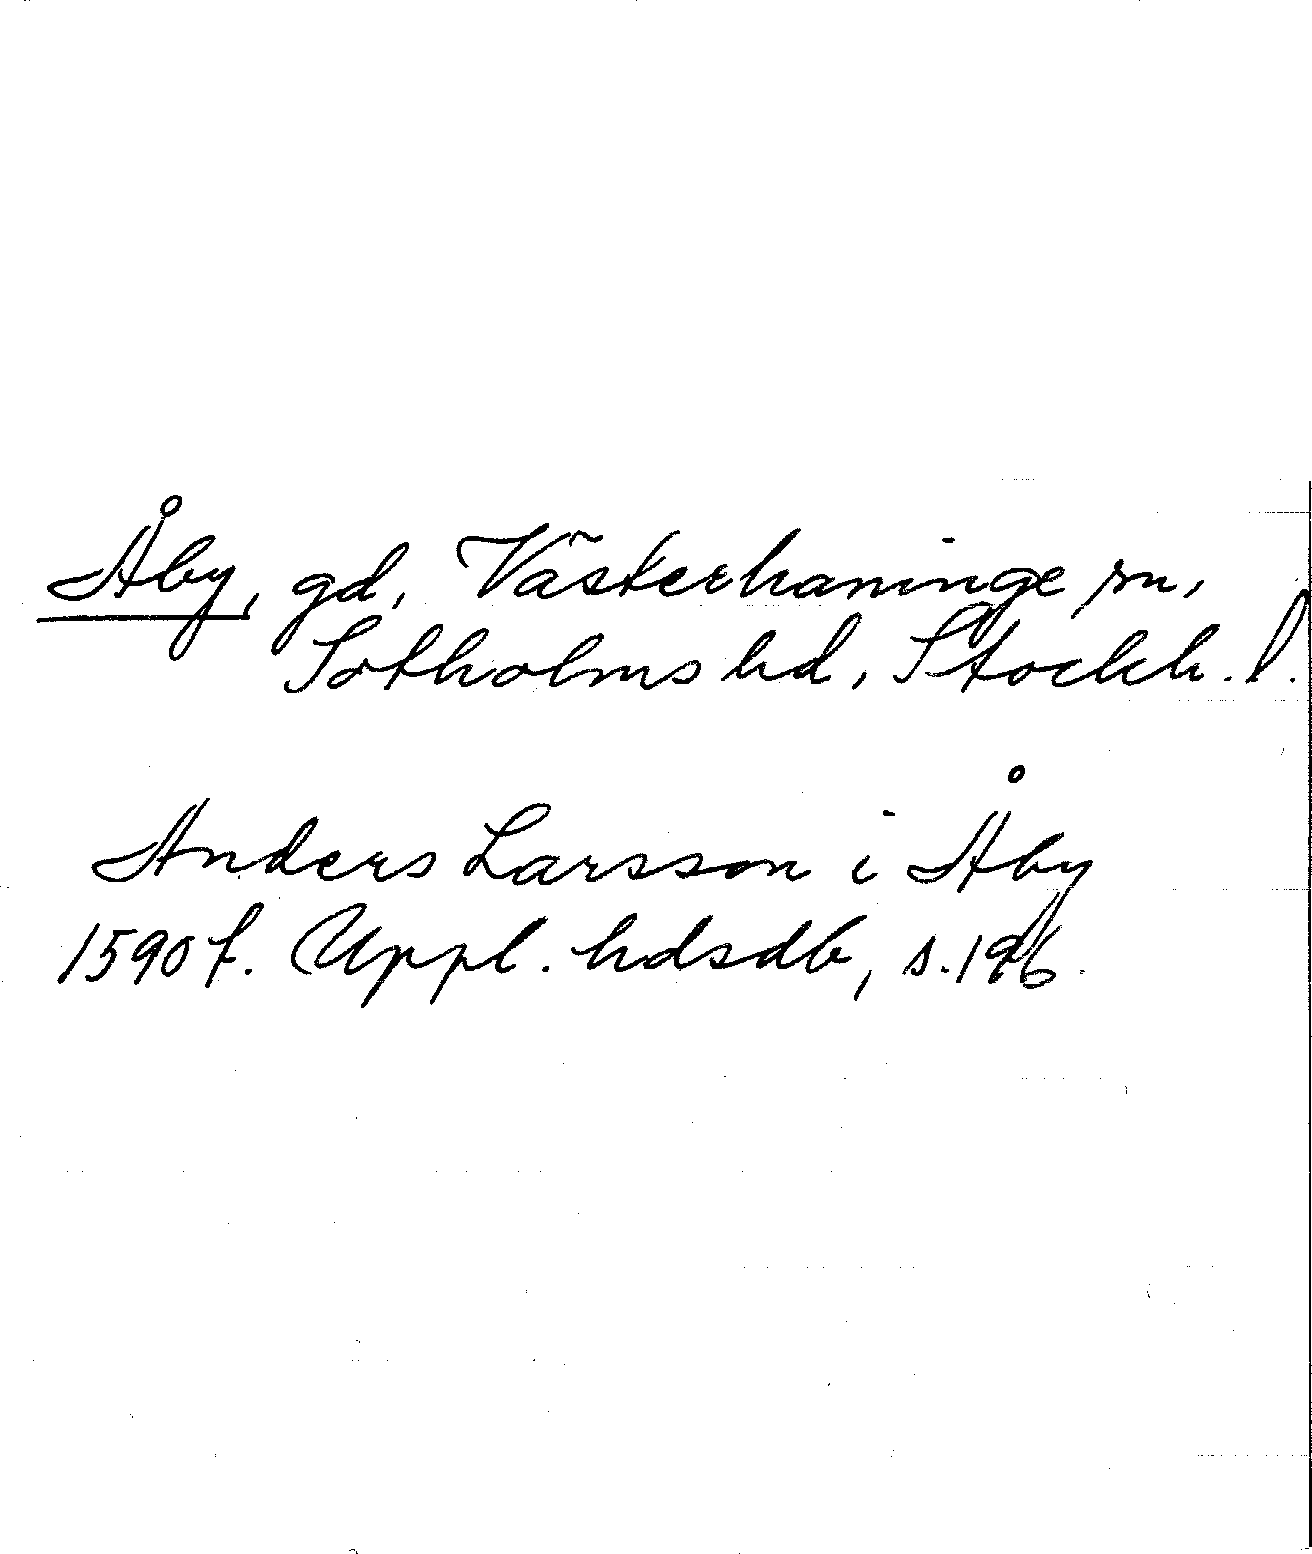 Åby, gd, Västerhaninge sn,
Sotholms hd, Stockh. l.
Anders Larsson i Åby
1590 f. Uppl. hdsdb, s. 196.